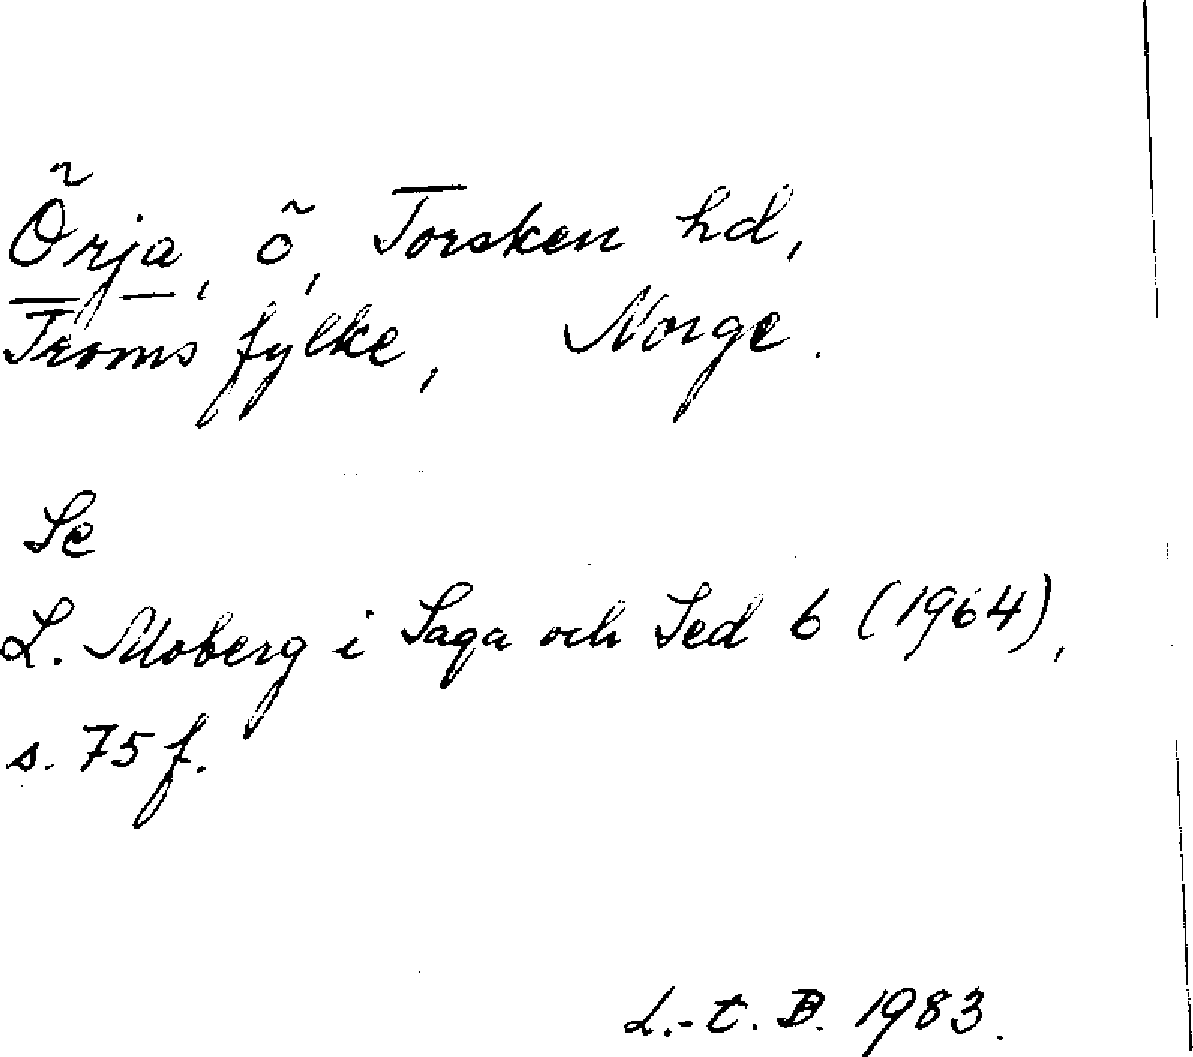 Õrja, õ, Torsken hd,
Troms fylke, Norge.
Se
L. Moberg i Saga och Sed 6 (1964),
s. 75 f.
L.-t. B. 1983.